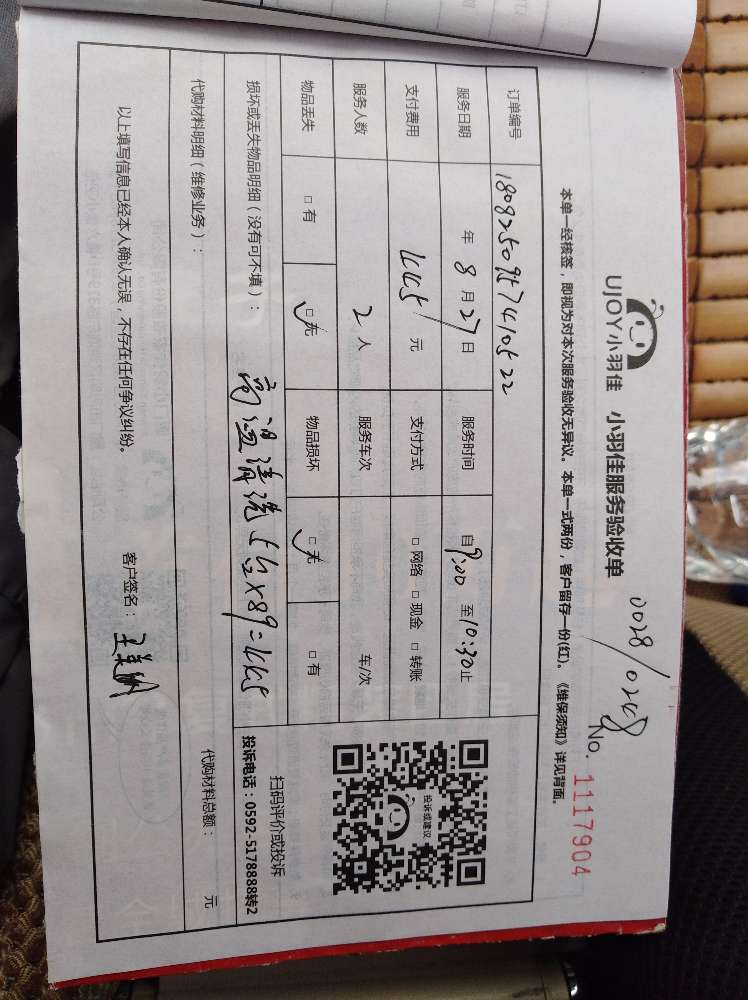 UJOY小羽佳 小羽佳服务验收单
0028/0248
No. 1117904
本单一经核签，即视为对本次服务验收无异议。本单一式两份，客户留存一份(红)。《维保须知》详见背面。
订单编号 1808250957410522
服务日期 年 8 月 27 日 服务时间 自 9:00 至 10:30 止
支付费用 445 元 支付方式 □ 网络 □ 现金 □ 转账
服务人数 2 人 服务车次 车/次
物品丢失 □ 有 □ 无 物品损坏 □ 无 □ 有
损坏或丢失物品明细（没有可不填）： 高温清洗 5 ×89=445
投诉或建议
扫码评价或投诉
投诉电话：0592-5178888转2
代购材料明细（维修业务）： 代购材料总额： 元
以上填写信息已经本人确认无误，不存在任何争议纠纷。 客户签名：